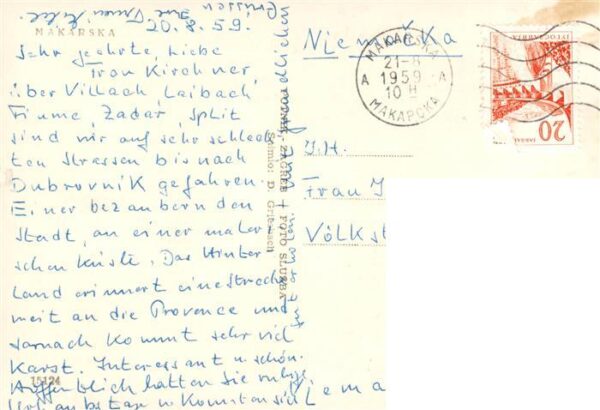 MAKARSKA
20.8.59.
Sehr geehrte, liebe
Frau Kirchner,
über Villach Laibach
Fiume, Zadar, Split
sind wir auf sehr schlech
ten Strassen bis nach
Dubrovnik gefahren.
Einer bezaubernden
Stadt, an einer maler
schen Küste. Das Hinter
land erinnert eine Strecke
weit an die Provence und
danach kommt sehr viel
Karst. Interessant u. schön.
Hoffentlich hatten Sie ruhige
in Konstanz
Grüssen Ihre
freundlichen
15124
ZAGREB FOTO SLUŽBA
Snimio: D. Griesbach
Njemačka
MAKARSKA
21-8
A 1959 A
10 H
МАКАРСКА
JUGOSLAVIJA
20
Frau I
Völkst
lema